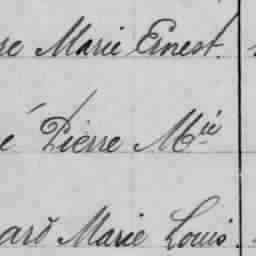 re Marie Ernest.
é Pierre Mie
ard Marie Louis.